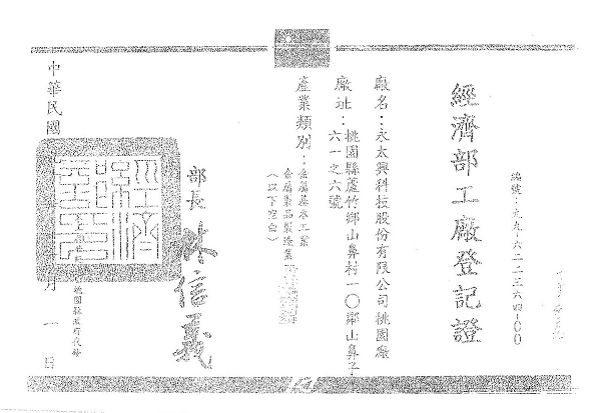 經濟部工廠登記證
編號：九九－六二二三六四－00
廠名：永太興科技股份有限公司桃園廠
廠址：桃園縣蘆竹鄉山鼻村一〇鄰山鼻子
六一之六號
產業類別：金屬基本工業
金屬製品製造業
（以下空白）
部長 林信義
中華民國
月一日
桃園縣政府